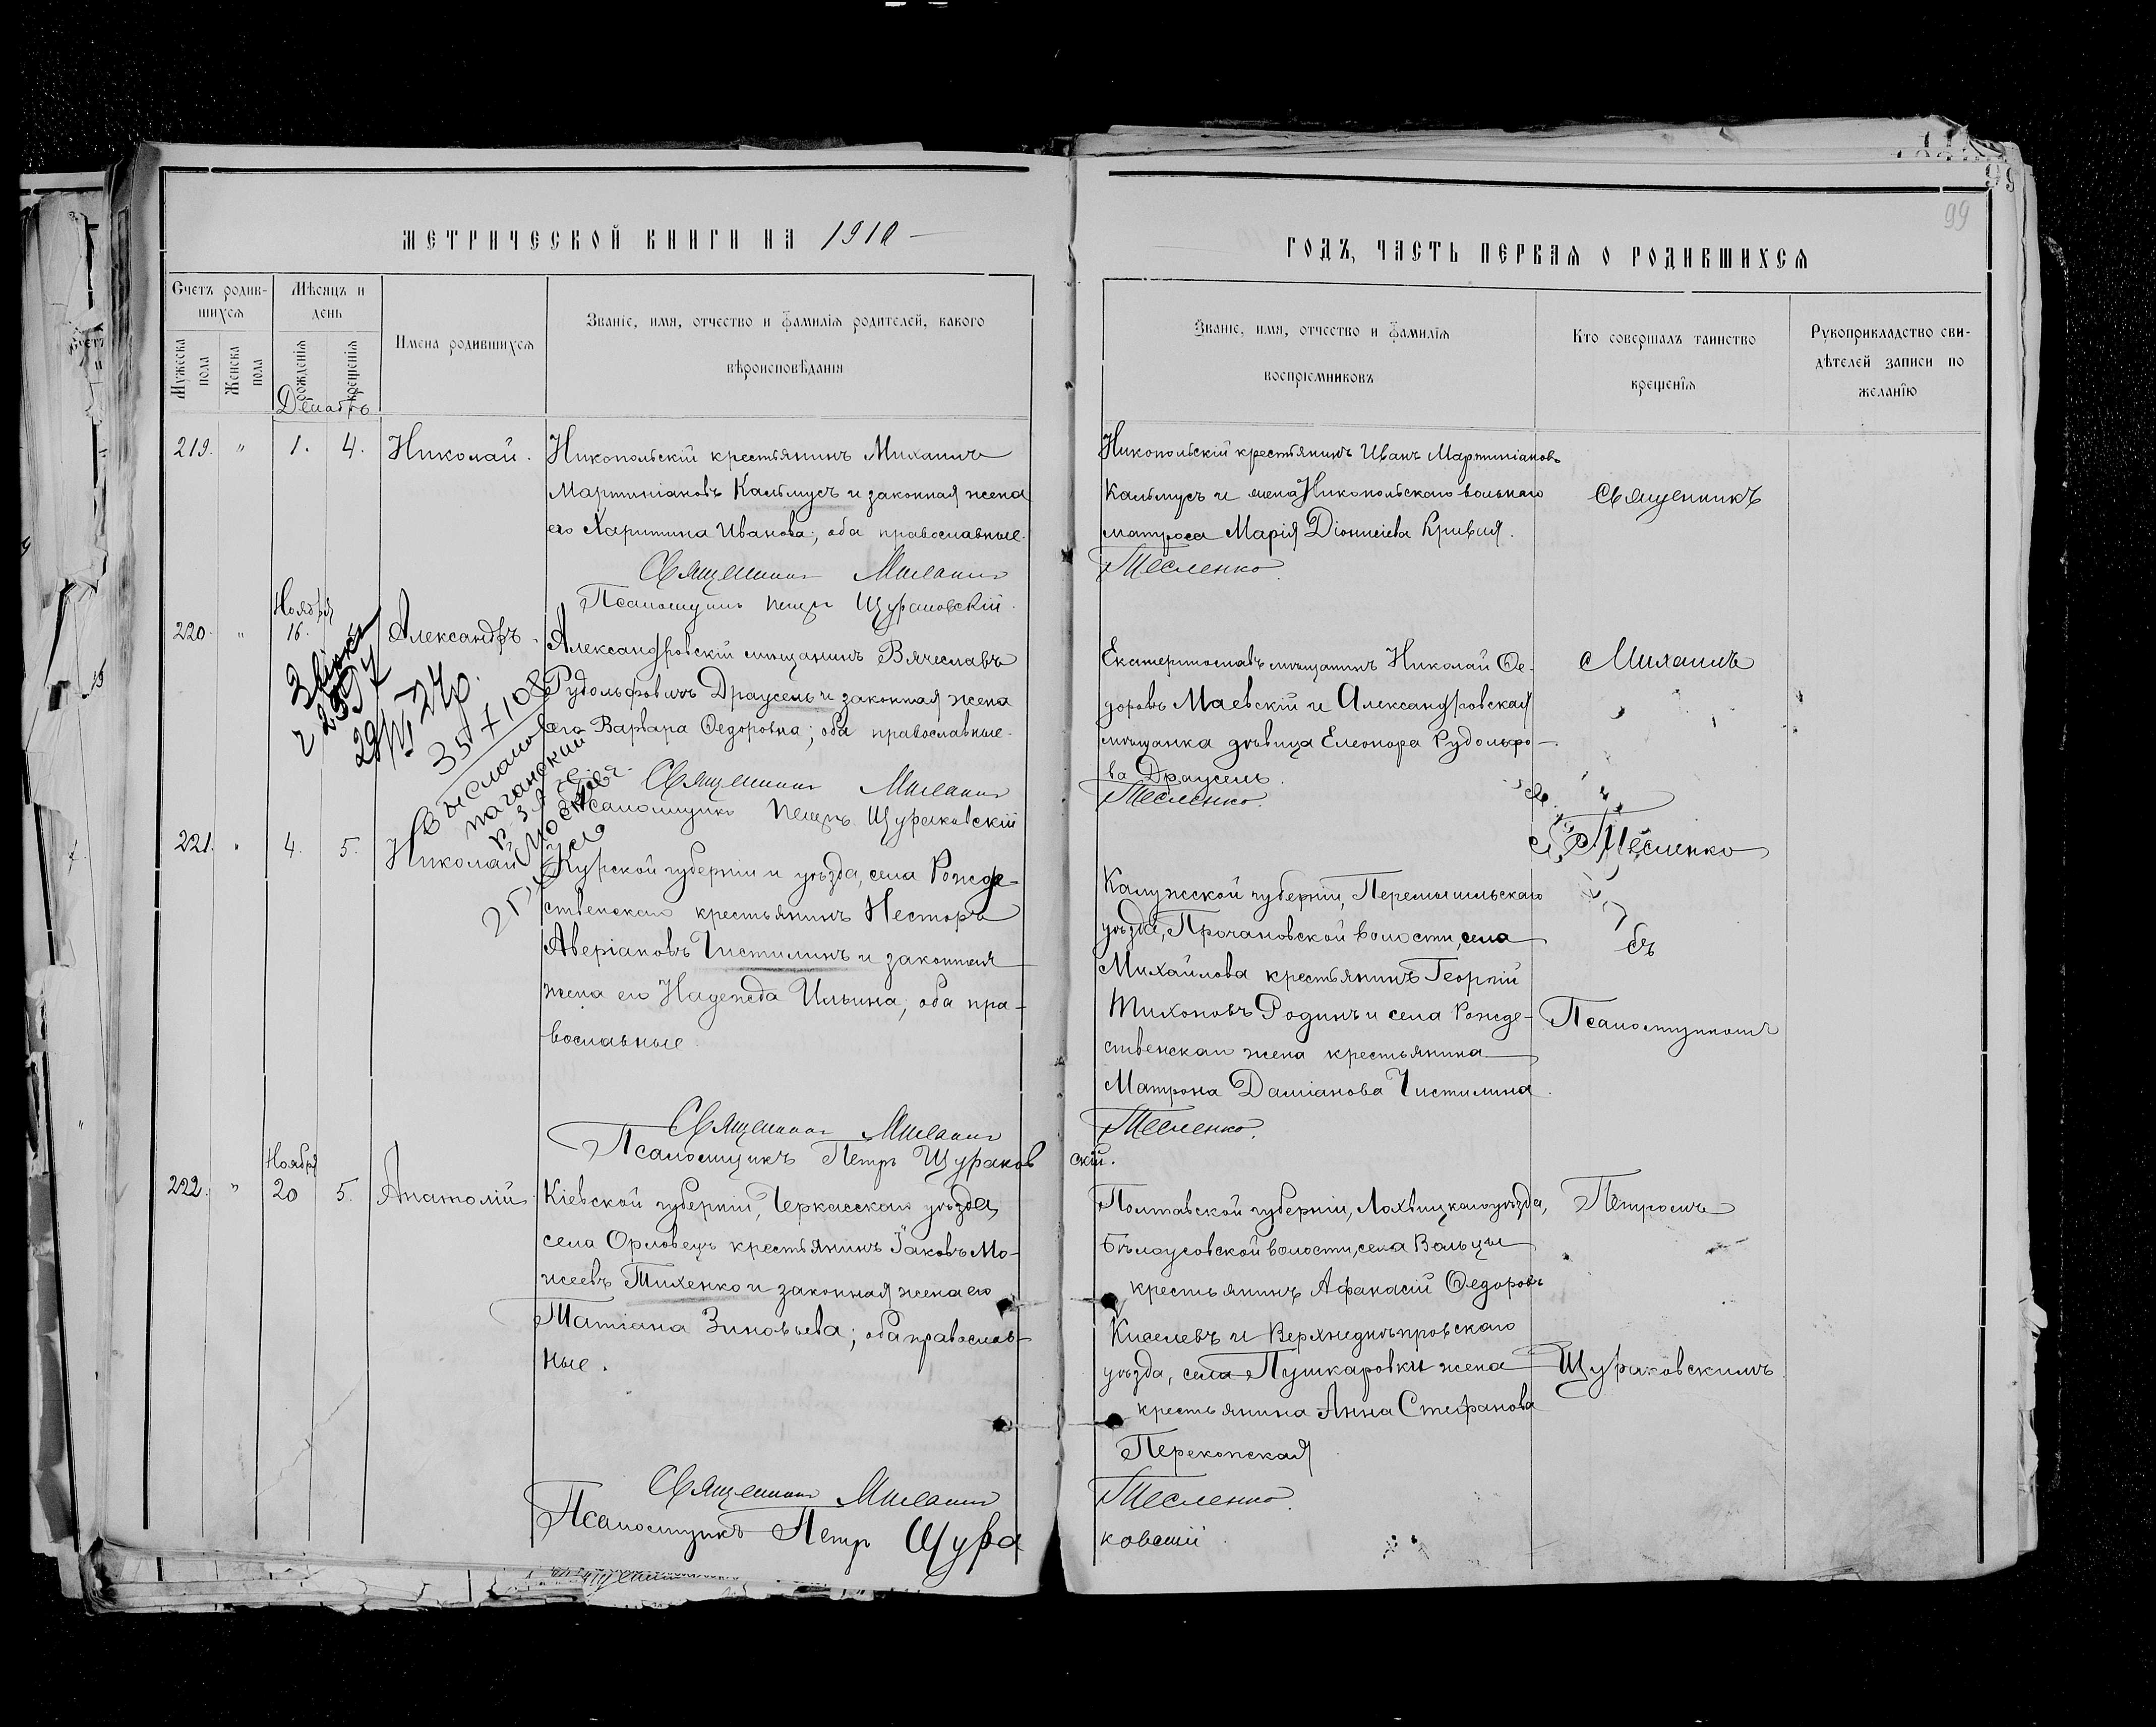 МЕТРИЧЕСКОЙ КНИГИ НА 1910
ГОДЪ, ЧАСТЬ ПЕРВАЯ О РОДИВШИХСЯ
99
Счетъ родив-
шихся
Мѣсяцъ и
день
Имена родившихся
Званіе, имя, отчество и фамилія родителей, какого
вѣроисповѣданія
Мужеска
пола
Женска
пола
рожденія
крещенія
Званіе, имя, отчество и фамилія
воспріемниковъ
Кто совершалъ таинство
крещенія
Рукоприкладство сви-
дѣтелей записи по
желанію
Декабрь
219. " 1. 4. Николай.
Никопольскій крестьянинъ Михаилъ
Мартиніановъ Калмусъ и законная жена
его Харитина Иванова; оба православные.
Священникъ Михаилъ
Псаломщикъ Петръ Щураковскій.
Никопольскій крестьянинъ Иванъ Мартиніановъ
Калмусъ и жена Никопольскаго вольнаго
матроса Марія Діонисіева Кривия.
Тесленко.
Священникъ
Ноября
220. " 16. Александръ.
Александровскій мѣщанинъ Вячеславъ
Рудольфовичъ Драусель и законная жена
его Варвара Ѳедоровна; оба православные.
Священникъ Михаилъ
Псаломщикъ Петръ Щураковскій
Екатериносл мѣщанинъ Николай Ѳе-
доровъ Маевскій и Александровская
мѣщанка дѣвица Елеонора Рудольфо-
ва Драусель.
Тесленко.
Михаилъ
Тесленко
221. " 4. 5. Николай
Курской губерніи и уѣзда, села Рожде-
ственскаго крестьянинъ Несторъ
Аверіановъ Чистилинъ и законная
жена его Надежда Ильина; оба пра-
вославные
Священникъ Михаилъ
Псаломщикъ Петръ Щураков
скій.
Калужской губерніи, Перемышльскаго
уѣзда, волости, села
Михайлова крестьянинъ Георгій
Тихоновъ Родинъ и села Рожде-
ственскаго жена крестьянина
Матрона Даміанова Чистилина.
Тесленко.
съ
Псаломщикомъ
Ноября
222. " 20 5. Анатолій
Кіевской губерніи, Черкасскаго уѣзда,
села Орловецъ крестьянинъ Іаковъ Мо-
исеевъ Тихенко и законная жена его
Татіана Зиновьева; оба православ-
ные.
Священникъ Михаилъ
Псаломщикъ Петръ Щура
Полтавской губерніи, Лохвицкаго уѣзда,
Бѣлоусовской волости, села
крестьянинъ Афанасій Ѳедоровъ
Киселевъ и Верхнеднѣпровскаго
уѣзда, села Пушкаровки жена
крестьянина Анна Стефанова
Перекопская
Тесленко.
ковскій
Петромъ
Щураковскимъ.